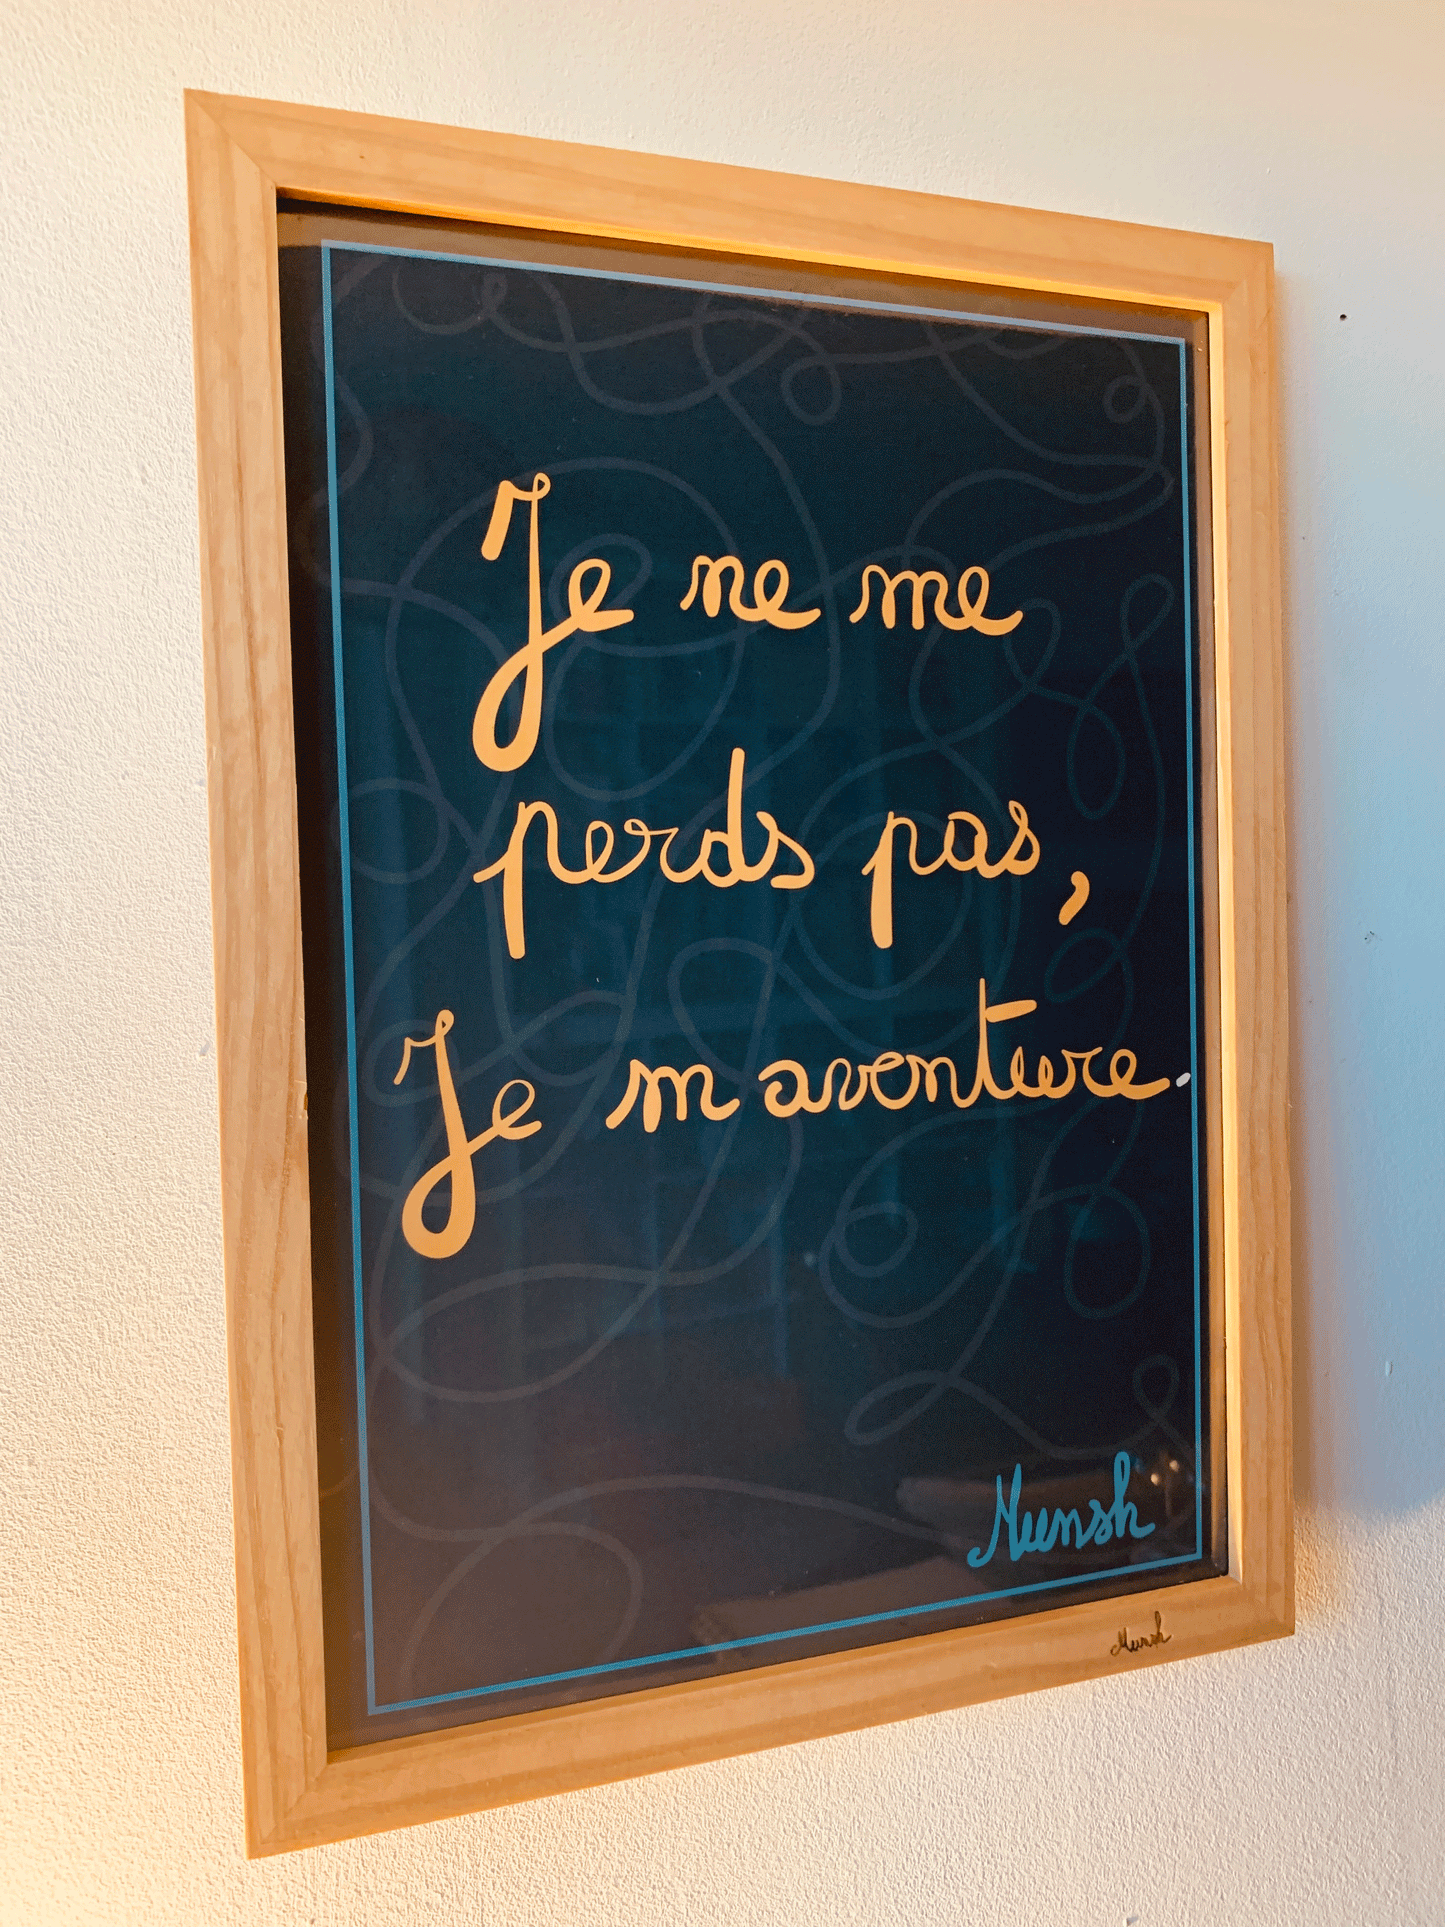 Je ne me
perds pas,
Je m aventure.
Munsh
Munsh